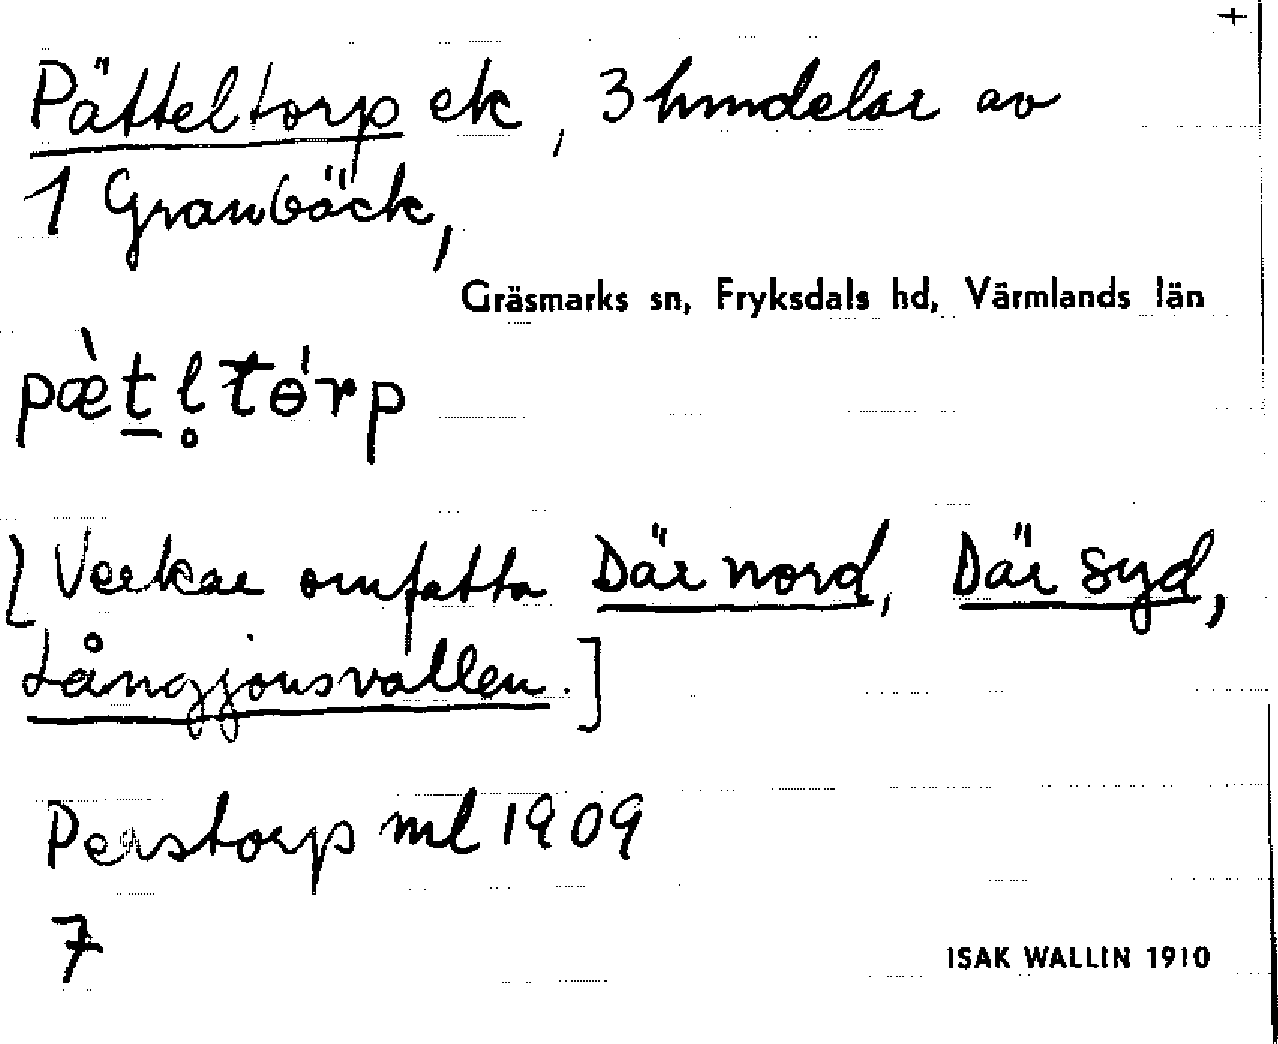 +
Pätteltorp ek, 3 hmdelar av
1 Granbäck,
Gräsmarks sn, Fryksdals hd, Värmlands län
pæ̀t̠l̥tɵ́rp
[Verkar omfatta Där nord, Där syd,
Långjonsvallen.]
Perstorp ml 1909
7
ISAK WALLIN 1910